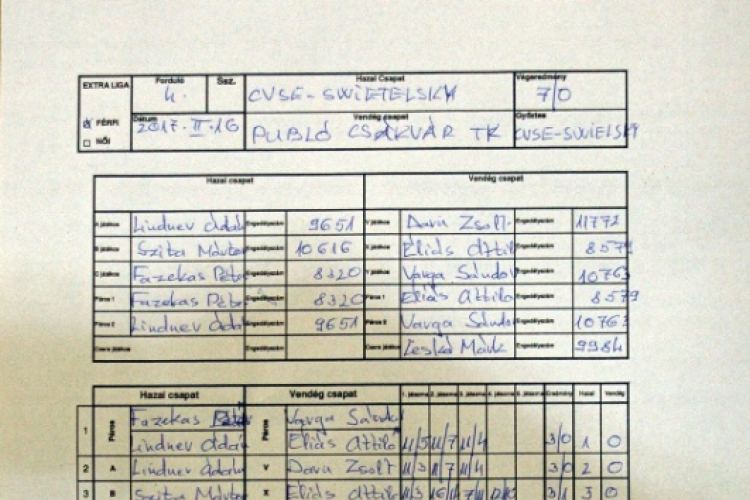 EXTRA LIGA Forduló 4. Ssz. Hazai Csapat CVSE-SWIETELSKY Végeredmény 7/0
FÉRFI Dátum 2017.II.16 Vendég csapat PUBLÓ CSÁKVÁR TK Győztes CVSE-SWIELSKY
NŐI
Hazai csapat Vendég csapat
A játékos Lindner Ádám Engedélyszám 9651 V játékos Daru Zsolt Engedélyszám 11772
B játékos Szita Márton Engedélyszám 10616 X játékos Éliás Attila Engedélyszám 8579
C játékos Fazekas Péter Engedélyszám 8320 Y játékos Varga Sándor Engedélyszám 10763
Páros 1 Fazekas Péter Engedélyszám 8320 Páros 1 Éliás Attila Engedélyszám 8579
Páros 2 Lindner Ádám Engedélyszám 9651 Páros 2 Varga Sándor Engedélyszám 10763
Csere játékos Engedélyszám Csere játékos Leskó Márk Engedélyszám 9984
Hazai csapat Vendég csapat 1. játszma 2. játszma 3. játszma 4. játszma 5. játszma Eredmény Hazai Vendég
1 Páros Fazekas Péter Páros Varga Sándor
Lindner Ádám Éliás Attila 11/5 11/7 11/4 3/0 1 0
2 A Lindner Ádám V Daru Zsolt 11/3 11/7 11/4 3/0 2 0
3 B Szita Márton X Éliás Attila 3/1 3 0